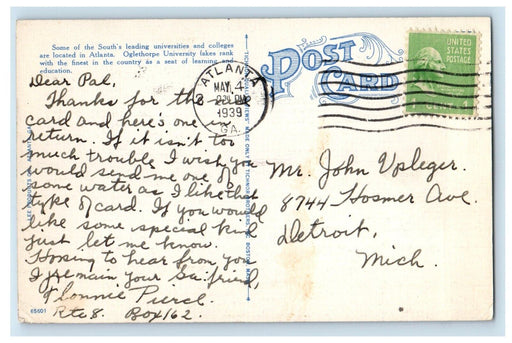 Some of the South's leading universities and colleges
are located in Atlanta. Oglethorpe University takes rank
with the finest in the country as a seat of learning and
education.
Dear Pal,
Thanks for the
card and here's one in
return. If it isn't too
much trouble I wish you
would send me one of
some water as I like that
type of card. If you would
like some special kind
just let me know.
Hoping to hear from you
I remain your Ga. friend,
Pierce
Rte 8. Box 162.
65601
POST
CARD
ATLANTA
MAY 4
1939
GA.
UNITED
STATES
POSTAGE
Mr. John Upleger.
8744 Hosmer Ave.
Detroit,
Mich.